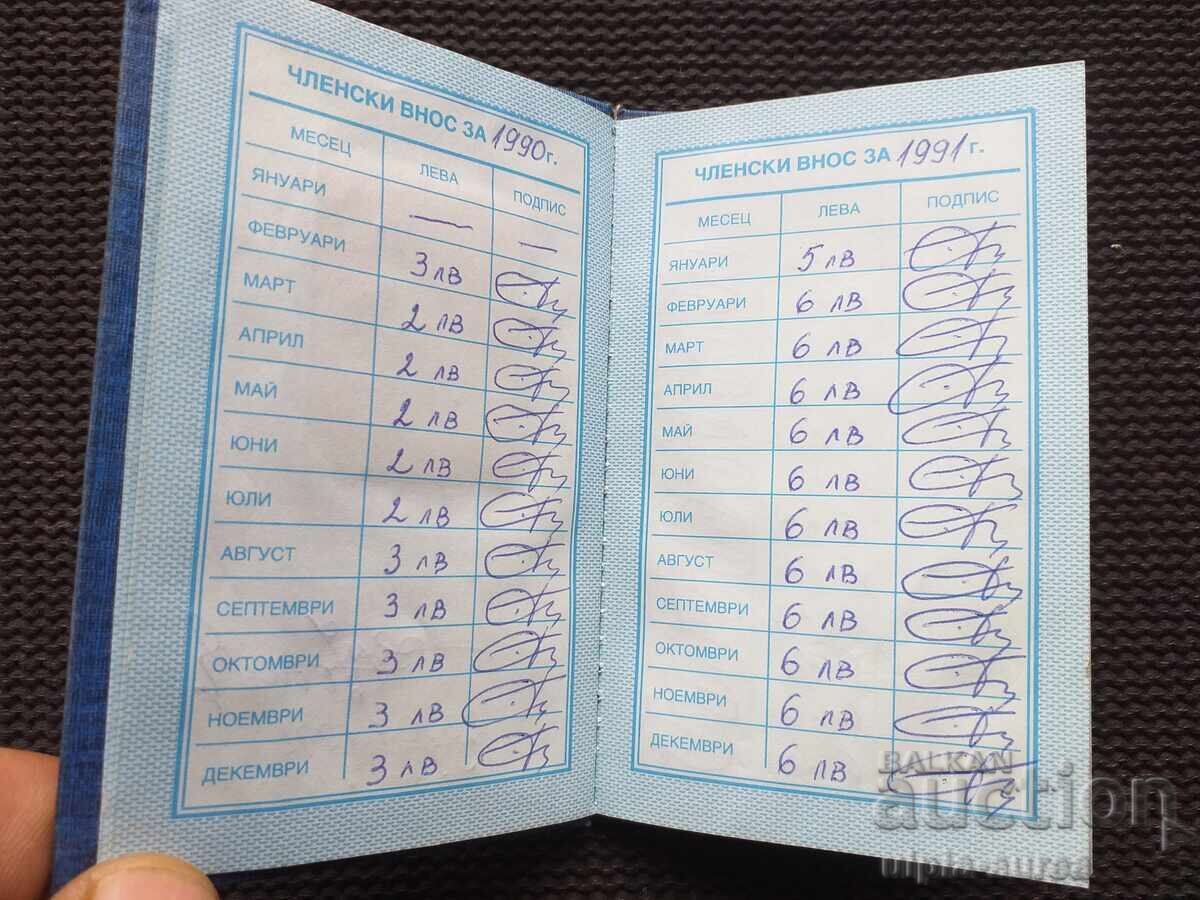 ЧЛЕНСКИ ВНОС ЗА 1990 г.
МЕСЕЦ ЛЕВА ПОДПИС
ЯНУАРИ — —
ФЕВРУАРИ 3 лв
МАРТ 2 лв
АПРИЛ 2 лв
МАЙ 2 лв
ЮНИ 2 лв
ЮЛИ 2 лв
АВГУСТ 3 лв
СЕПТЕМВРИ 3 лв
ОКТОМВРИ 3 лв
НОЕМВРИ 3 лв
ДЕКЕМВРИ 3 лв
ЧЛЕНСКИ ВНОС ЗА 1991 г.
МЕСЕЦ ЛЕВА ПОДПИС
ЯНУАРИ 5 лв
ФЕВРУАРИ 6 лв
МАРТ 6 лв
АПРИЛ 6 лв
МАЙ 6 лв
ЮНИ 6 лв
ЮЛИ 6 лв
АВГУСТ 6 лв
СЕПТЕМВРИ 6 лв
ОКТОМВРИ 6 лв
НОЕМВРИ 6 лв
ДЕКЕМВРИ 6 лв
BALKAN
auction
ulpia-aurea